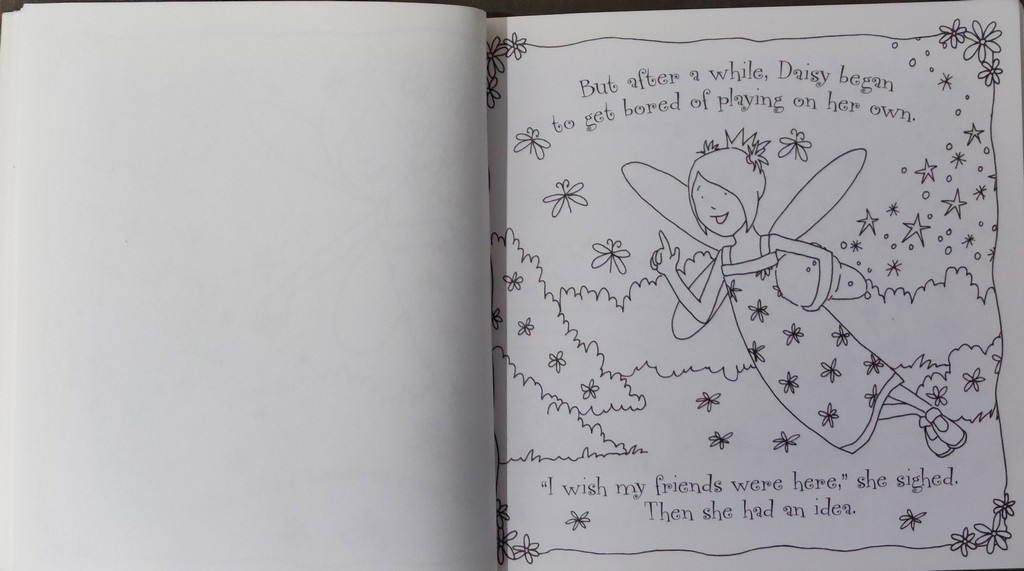 But after a while, Daisy began
to get bored of playing on her own.
"I wish my friends were here," she sighed.
Then she had an idea.